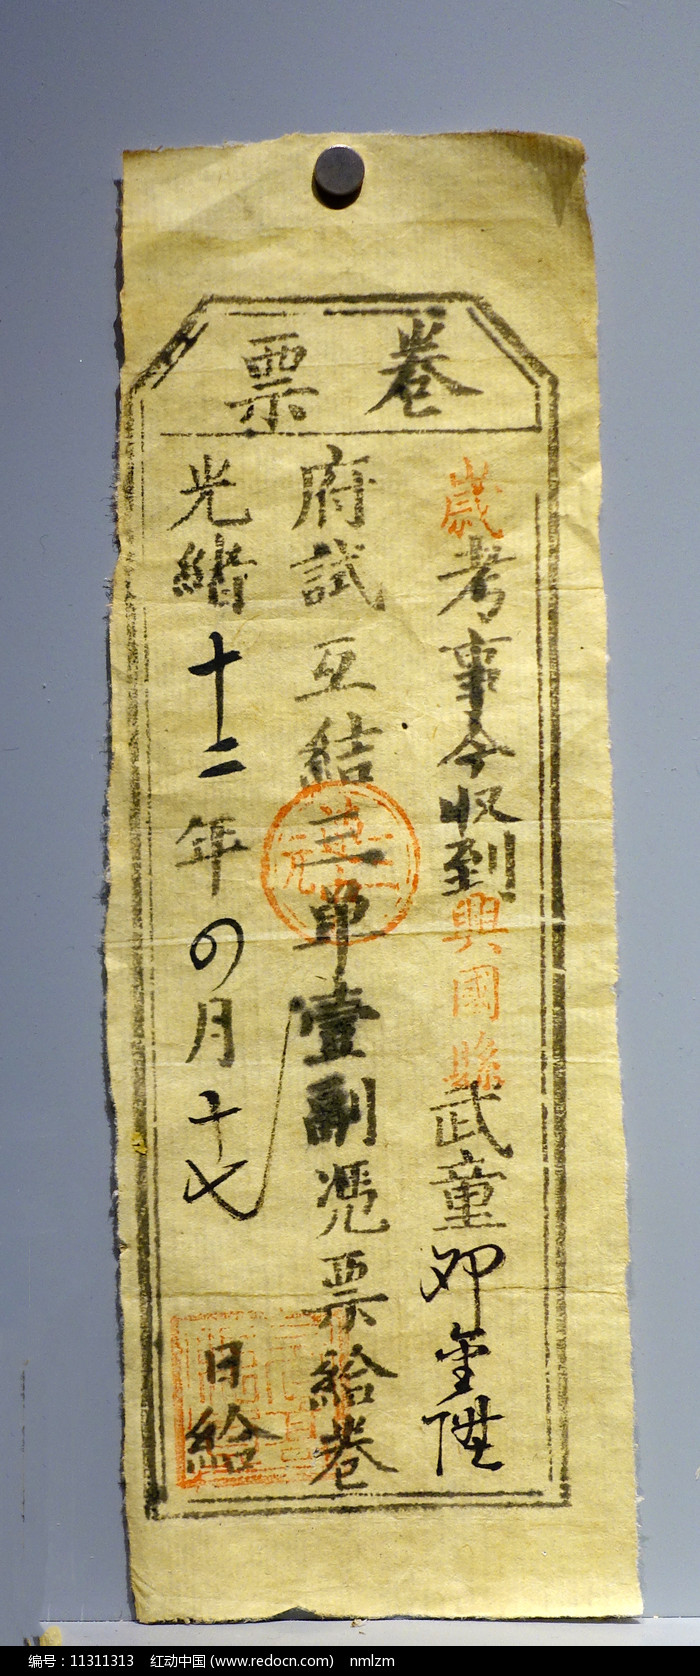 卷票
歲考事今收到興國縣武童邓金陞
府試互結三单壹副憑票給卷
光緒十二年四月十七日給
三元
编号：11311313 红动中国 (www.redocn.com) nmlzm